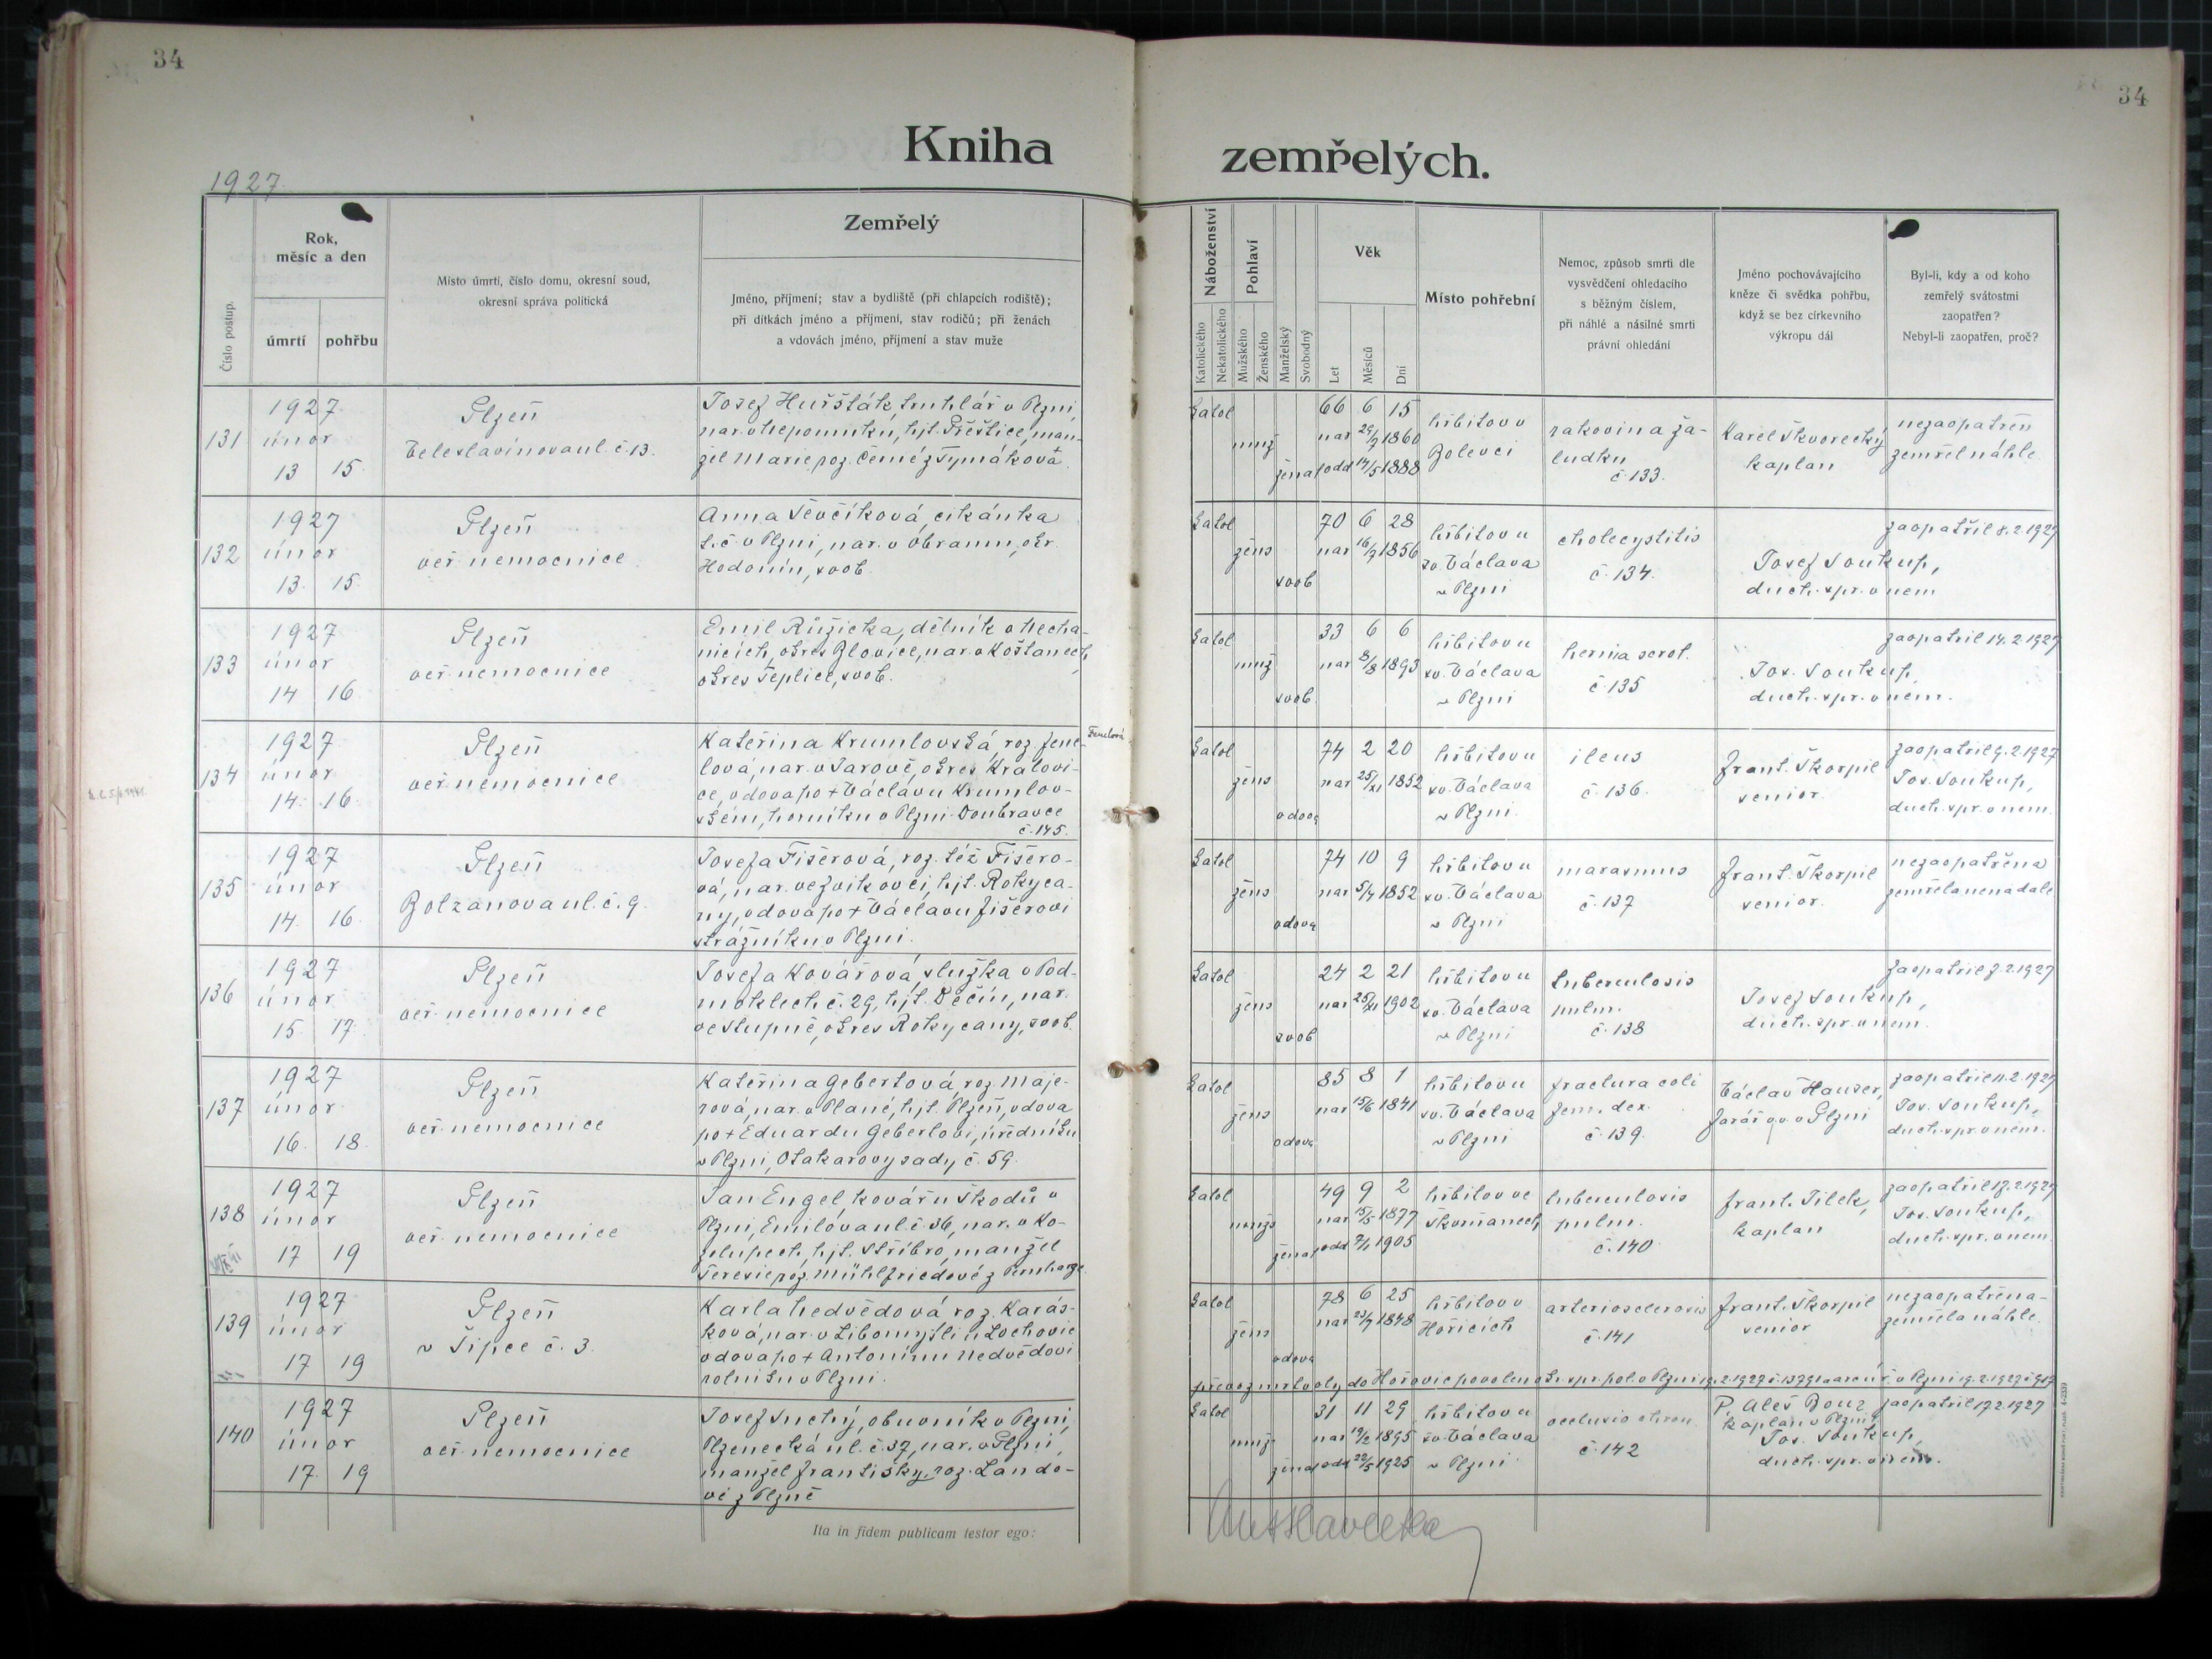 34
34
Kniha
zemřelých.
1927
Číslo postup.
Rok,
měsíc a den
úmrtí
pohřbu
Místo úmrtí, číslo domu, okresní soud,
okresní správa politická
Zemřelý
Jméno, příjmení; stav a bydliště (při chlapcích rodiště);
při dítkách jméno a příjmení, stav rodičů; při ženách
a vdovách jméno, příjmení a stav muže
Náboženství
Katolického
Nekatolického
Pohlaví
Mužského
Ženského
Manželský
Svobodný
Věk
Let
Měsíců
Dní
Místo pohřební
Nemoc, způsob smrti dle
vysvědčení ohledacího
s běžným číslem,
při náhlé a násilné smrti
právní ohledání
Jméno pochovávajícího
kněze či svědka pohřbu,
když se bez církevního
výkropu dál
Byl-li, kdy a od koho
zemřelý svátostmi
zaopatřen?
Nebyl-li zaopatřen, proč?
131
1927
únor
13 15
Plzeň
č. 13.
Josef truhlář v Plzni,
nar. v Nepomuku, hjt. Přeštice, man-
žel Marie, roz.
katol
muž
ženat
66 6 15
nar 29/7 1860
odd 14/5 1888
hřbitov v
Bolevci
rakovina ža-
ludku
č. 133.
Karel Škvorecký
kaplan
nezaopatřen
zemřel náhle
132
1927
únor
13. 15.
Plzeň
veř. nemocnice
Anna Ševčíková, cikánka
t. č. v Plzni, nar. v okr.
Hodonín, svob.
katol
žens
svob
70 6 28
nar 16/7 1856
hřbitov u
sv. Václava
v Plzni
cholecystitis
č. 134.
Josef Soukup,
duch. spr. v nem
zaopatřil 8.2.1927
133
1927
únor
14 16
Plzeň
veř. nemocnice
Emil Růžička, dělník v Necha-
nicích, okres Blovice, nar. v Košťanech,
okres Teplice, svob.
katol
muž
svob
33 6 6
nar 8/8 1893
hřbitov u
sv. Václava
v Plzni
hernia scrot.
č. 135
Jos. Soukup,
duch. spr. v nem.
zaopatřil 14.2.1927
134
1927
únor
14. 16.
Plzeň
veř. nemocnice
Kateřina Krumlovská, roz. Fenc-
lová, nar. v Jarově, okres Kralovi-
ce, vdova po + Václavu Krumlov-
ském, horníku v Plzni-Doubravce
č. 145.
Fenclová
katol
žens
vdova
74 2 20
nar 25/XI 1852
hřbitov u
sv. Václava
v Plzni.
ileus
č. 136.
Frant. Škorpil
senior.
zaopatřil 9.2.1927
Jos. Soukup,
duch. spr. v nem.
135
1927
únor
14. 16.
Plzeň
Bolzanova ul. č. 9.
Josefa Fišerová, roz. též Fišero-
vá, nar. ve Zvíkovci, hjt. Rokyca-
ny, vdova po + Václavu Fišerovi
strážníku v Plzni.
katol
žens
vdova
74 10 9
nar 5/4 1852
hřbitov u
sv. Václava
v Plzni
marasmus
č. 137
Frant. Škorpil
senior.
nezaopatřena
zemřela nenadále
136
1927
únor
15. 17.
Plzeň
veř. nemocnice
Josefa Kovářová, služka v Pod-
moklech č. 29, hjt. Děčín, nar.
ve Stupně, okres Rokycany, svob.
katol
žens
svob
24 2 21
nar 25/XI 1902
hřbitov u
sv. Václava
v Plzni
tuberculosis
pulm.
č. 138
Josef Soukup,
duch. spr. v nem.
zaopatřil 7.2.1927
137
1927
únor
16. 18.
Plzeň
veř. nemocnice
Kateřina Gebertová roz. Maje-
rová, nar. v Plané, hjt. Plzeň, vdova
po + Eduardu Gebertovi, úředníku
v Plzni, Otakarovy sady č. 59.
katol
žens
vdova
85 8 1
nar 15/6 1841
hřbitov u
sv. Václava
v Plzni
fractura coli
fem. dex.
č. 139.
Václav Hauser,
farář v Plzni
zaopatřil 11.2.1927
Jos. Soukup,
duch. spr. v nem.
138
1927
únor
17 19
Plzeň
veř. nemocnice
Jan Engel, kovář u Škodů v
Plzni, Emilova ul. č. 36, nar. v Ko-
zolupech, hjt. Stříbro, manžel
Terezie, roz. Mühlfriedové z
katol
mužs
ženat
49 9 2
nar 15/5 1877
odd 7/1 1905
hřbitov ve
Skvrňanech
tuberculosis
pulm.
č. 140
Frant. Jílek,
kaplan
zaopatřil 17.2.1927
Jos. Soukup,
duch. spr. v nem.
139
1927
únor
17 19
Plzeň
v Šipce č. 3.
Karla Nedvědová roz. Karás-
ková, nar. v Libomyšli u Lochovic
vdova po + Antonínu Nedvědovi
rolníku v Plzni.
katol
žens
vdova
78 6 25
nar 23/7 1848
hřbitov v
Hořicích
arteriosclerosis
č. 141
Frant. Škorpil
senior
nezaopatřena-
zemřela náhle.
převoz mrtvoly do Hořovic povolen
140
1927
únor
17. 19
Plzeň
veř. nemocnice
Josef Suchý, obuvník v Plzni,
Plzenecká ul. č. 37, nar. v Plzni,
manžel Františky, roz. Lando-
vé z Plzně
katol
muž
ženat
31 11 29
nar 19/2 1895
odd 22/5 1925
hřbitov u
sv. Václava
v Plzni
occlusio chron.
č. 142
P. Aleš Bouz
kaplan v Plzni
Jos. Soukup,
duch. spr. v nem.
zaopatřil 17.2.1927
Ita in fidem publicam testor ego: